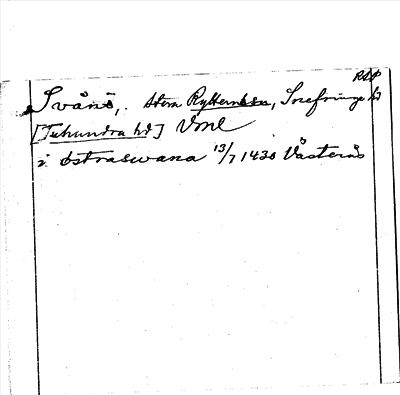 RAP
Svånö, . btern Rytterns sn, Snefringe hd
[Tuhundra hd] Vml
i Østraswana 13/7 1430 Västerås